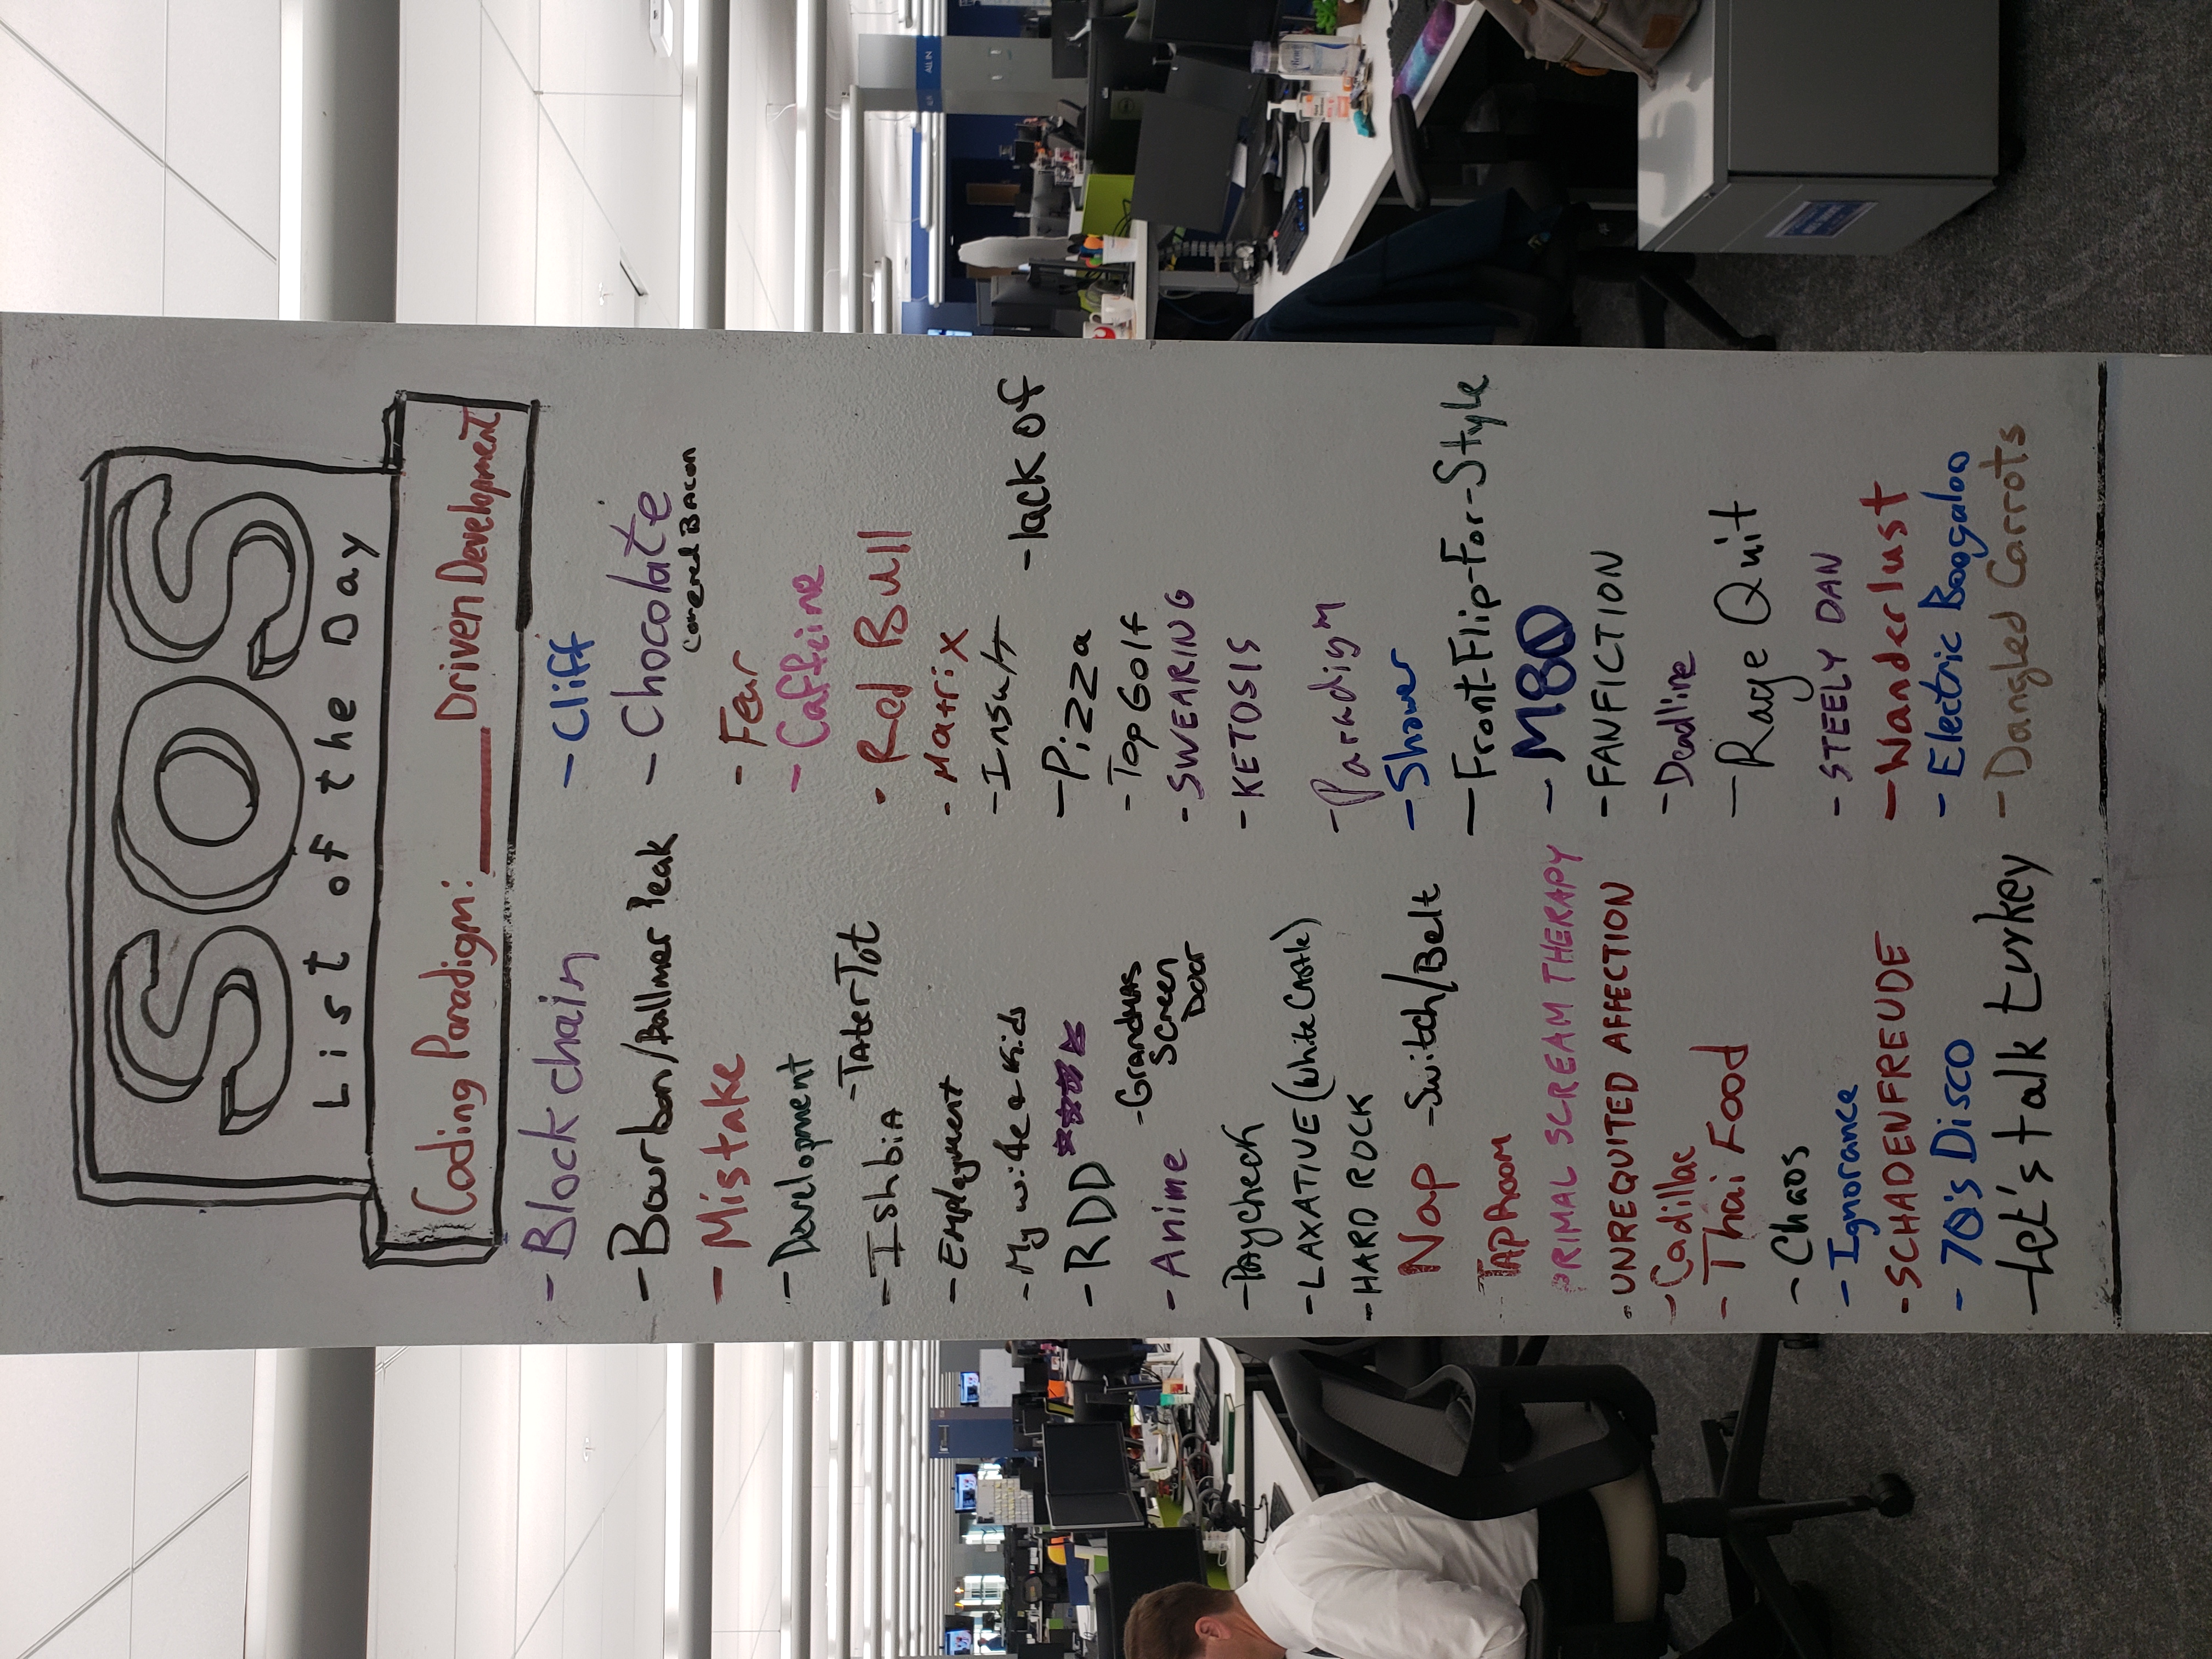 SOS
List of the Day
Coding Paradigm: _____ Driven Development
- Blockchain
- Bourbon/Ballmer Peak
- Mistake
- Development
- Tater Tot
- Ishbia
- Employment
- My wife & Kids
- RDD
- Grandmas
Screen
Door
- Anime
- Paycheck
- LAXATIVE (White Castle)
- HARD ROCK
Nap
- Switch/Belt
- TapRoom
PRIMAL SCREAM THERAPY
- UNREQUITED AFFECTION
- Cadillac
- Thai Food
- Chaos
- Ignorance
- SCHADENFREUDE
- 70's Disco
- Let's talk turkey
- Cliff
- Chocolate
Covered Bacon
- Fear
- Caffeine
- Red Bull
- Matrix
- Insult
- lack of
- Pizza
- Top Golf
- SWEARING
- KETOSIS
- Paradigm
- Shower
- Front-Flip-For-Style
- M80
- FANFICTION
- Deadline
- Rage Quit
- STEELY DAN
- Wanderlust
- Electric Boogaloo
- Dangled Carrots
ALL IN